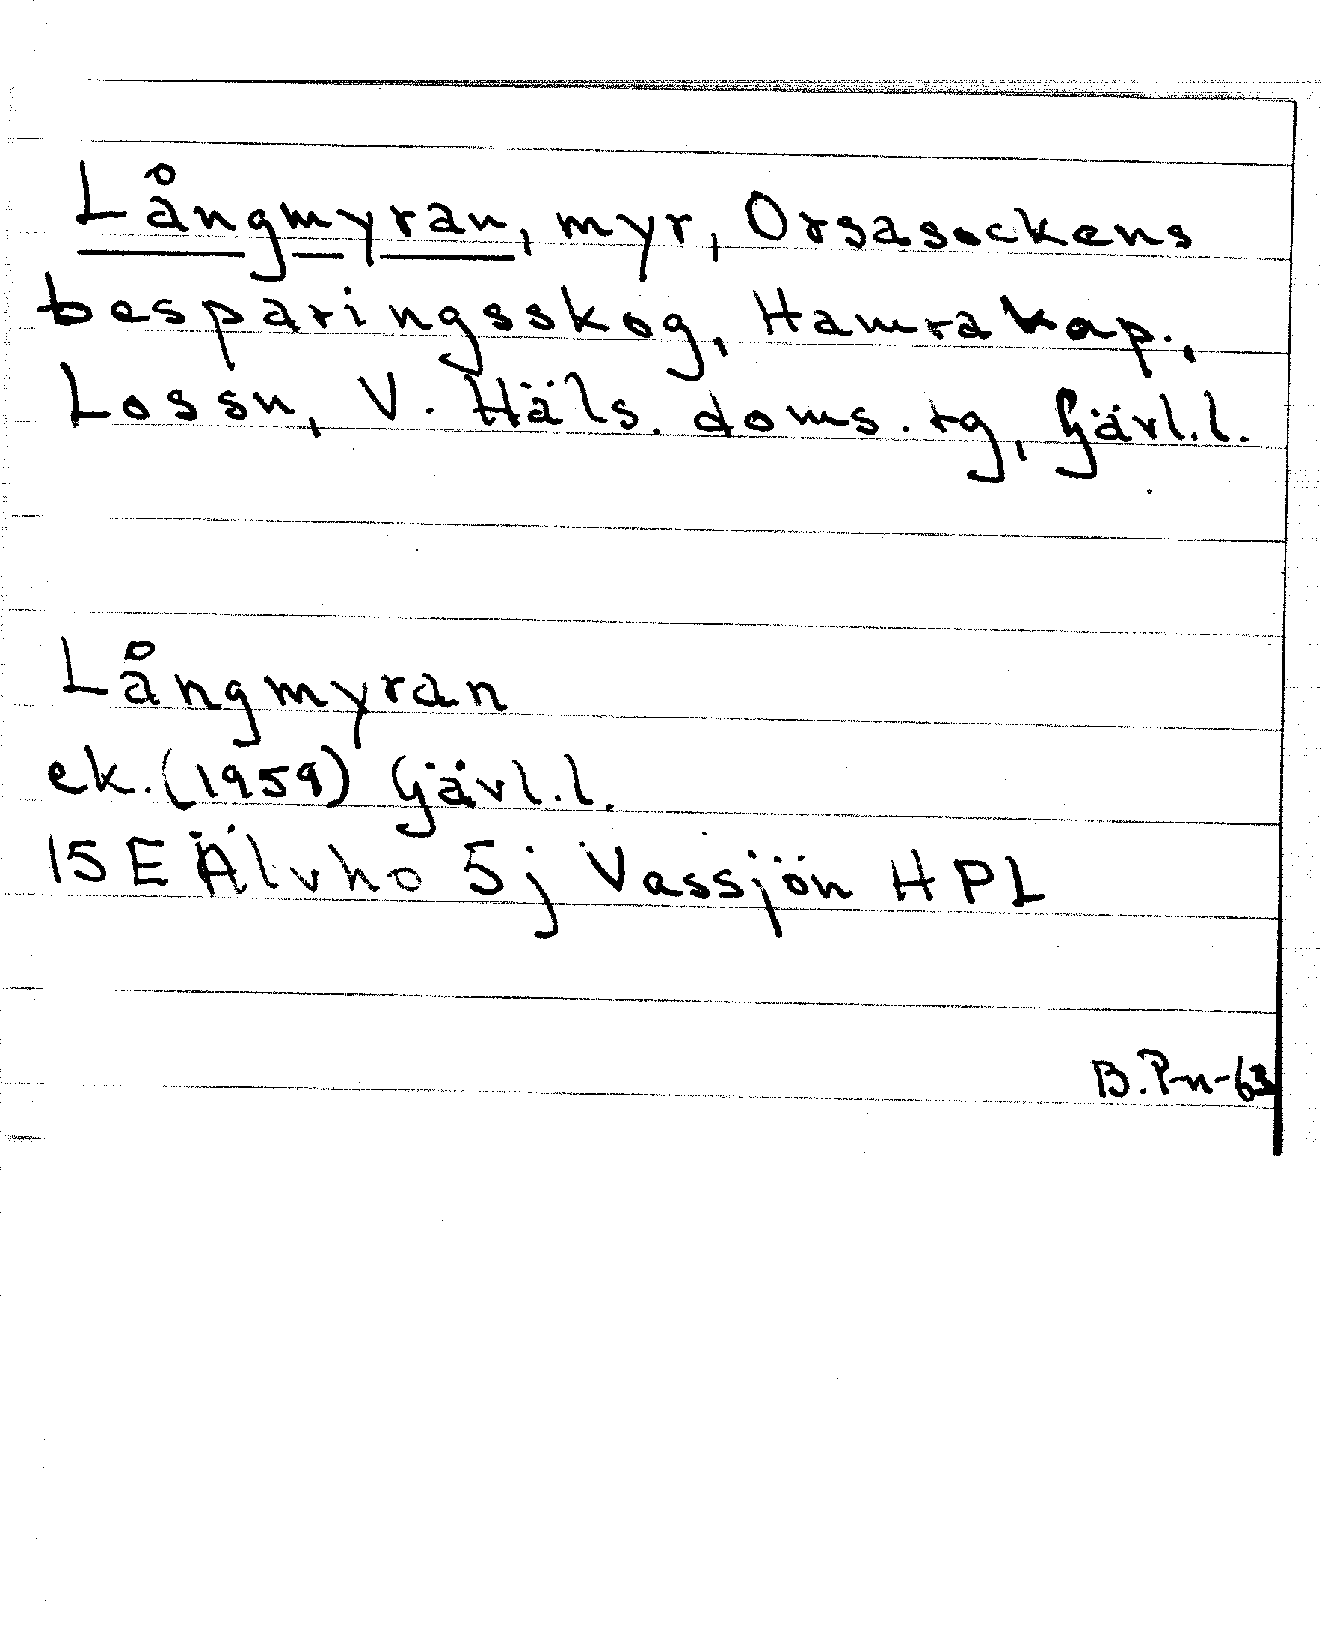 Långmyran, myr, Orsasockens
besparingsskog, Hamra kap.,
Lossn, V. Häls. doms. rg, Gävl.l.
Långmyran
ek. (1959) Gävl.l.
15 E Älvho 5j Vassjön HPL
B. P-n-63